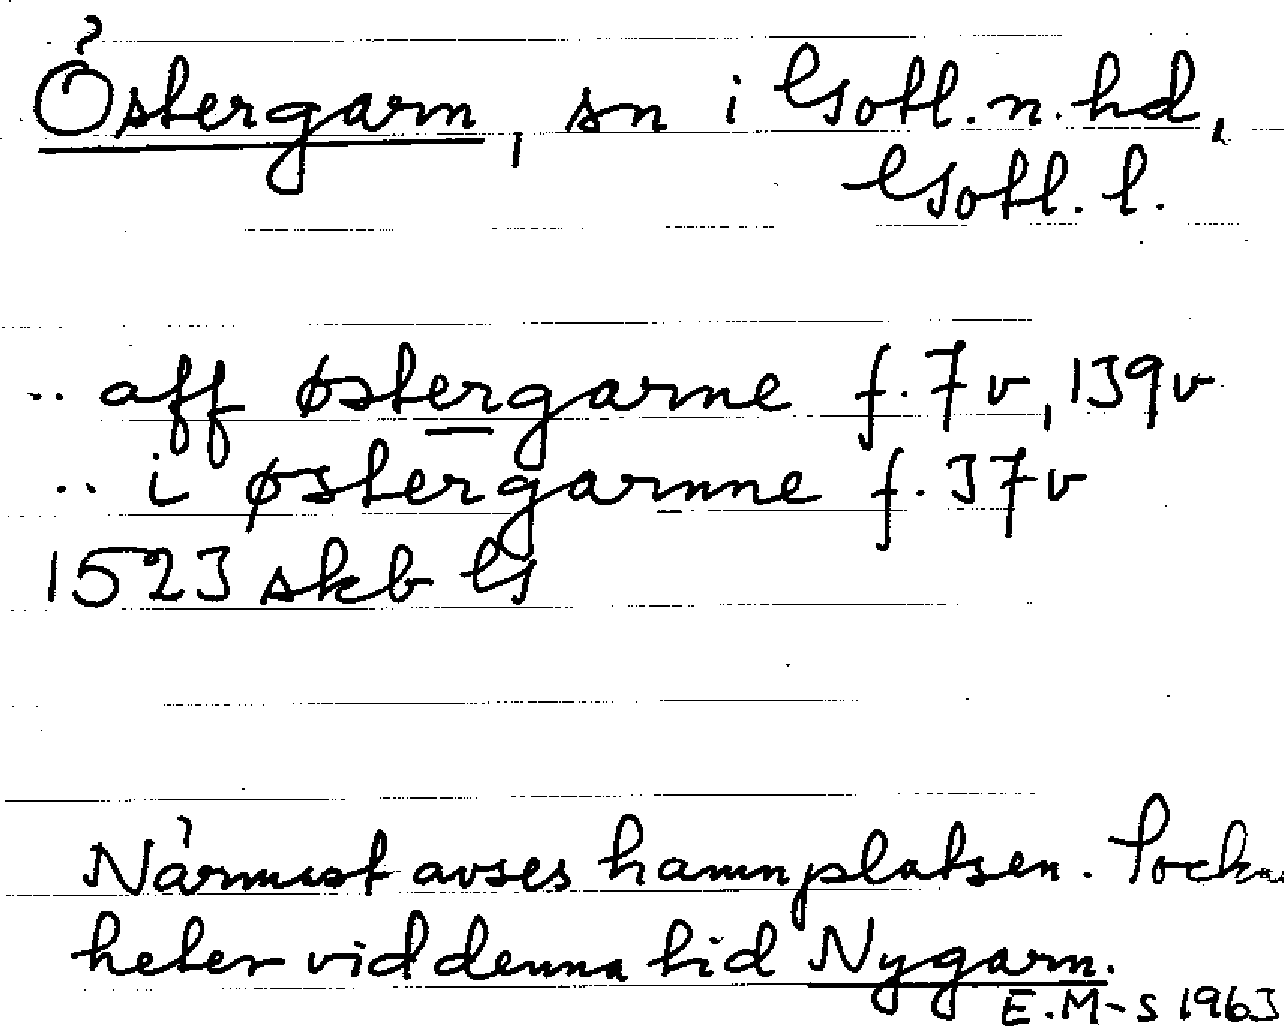 Östergarn, sn i Gotl. n. hd,
Gotl. l.
.. aff østergarne f. 7 v, 139 v
.. i østergarnne f. 37 v
1523 skb G
Närmast avses hamnplatsen. Sockn
heter vid denna tid Nygarn.
E.M-s 1963